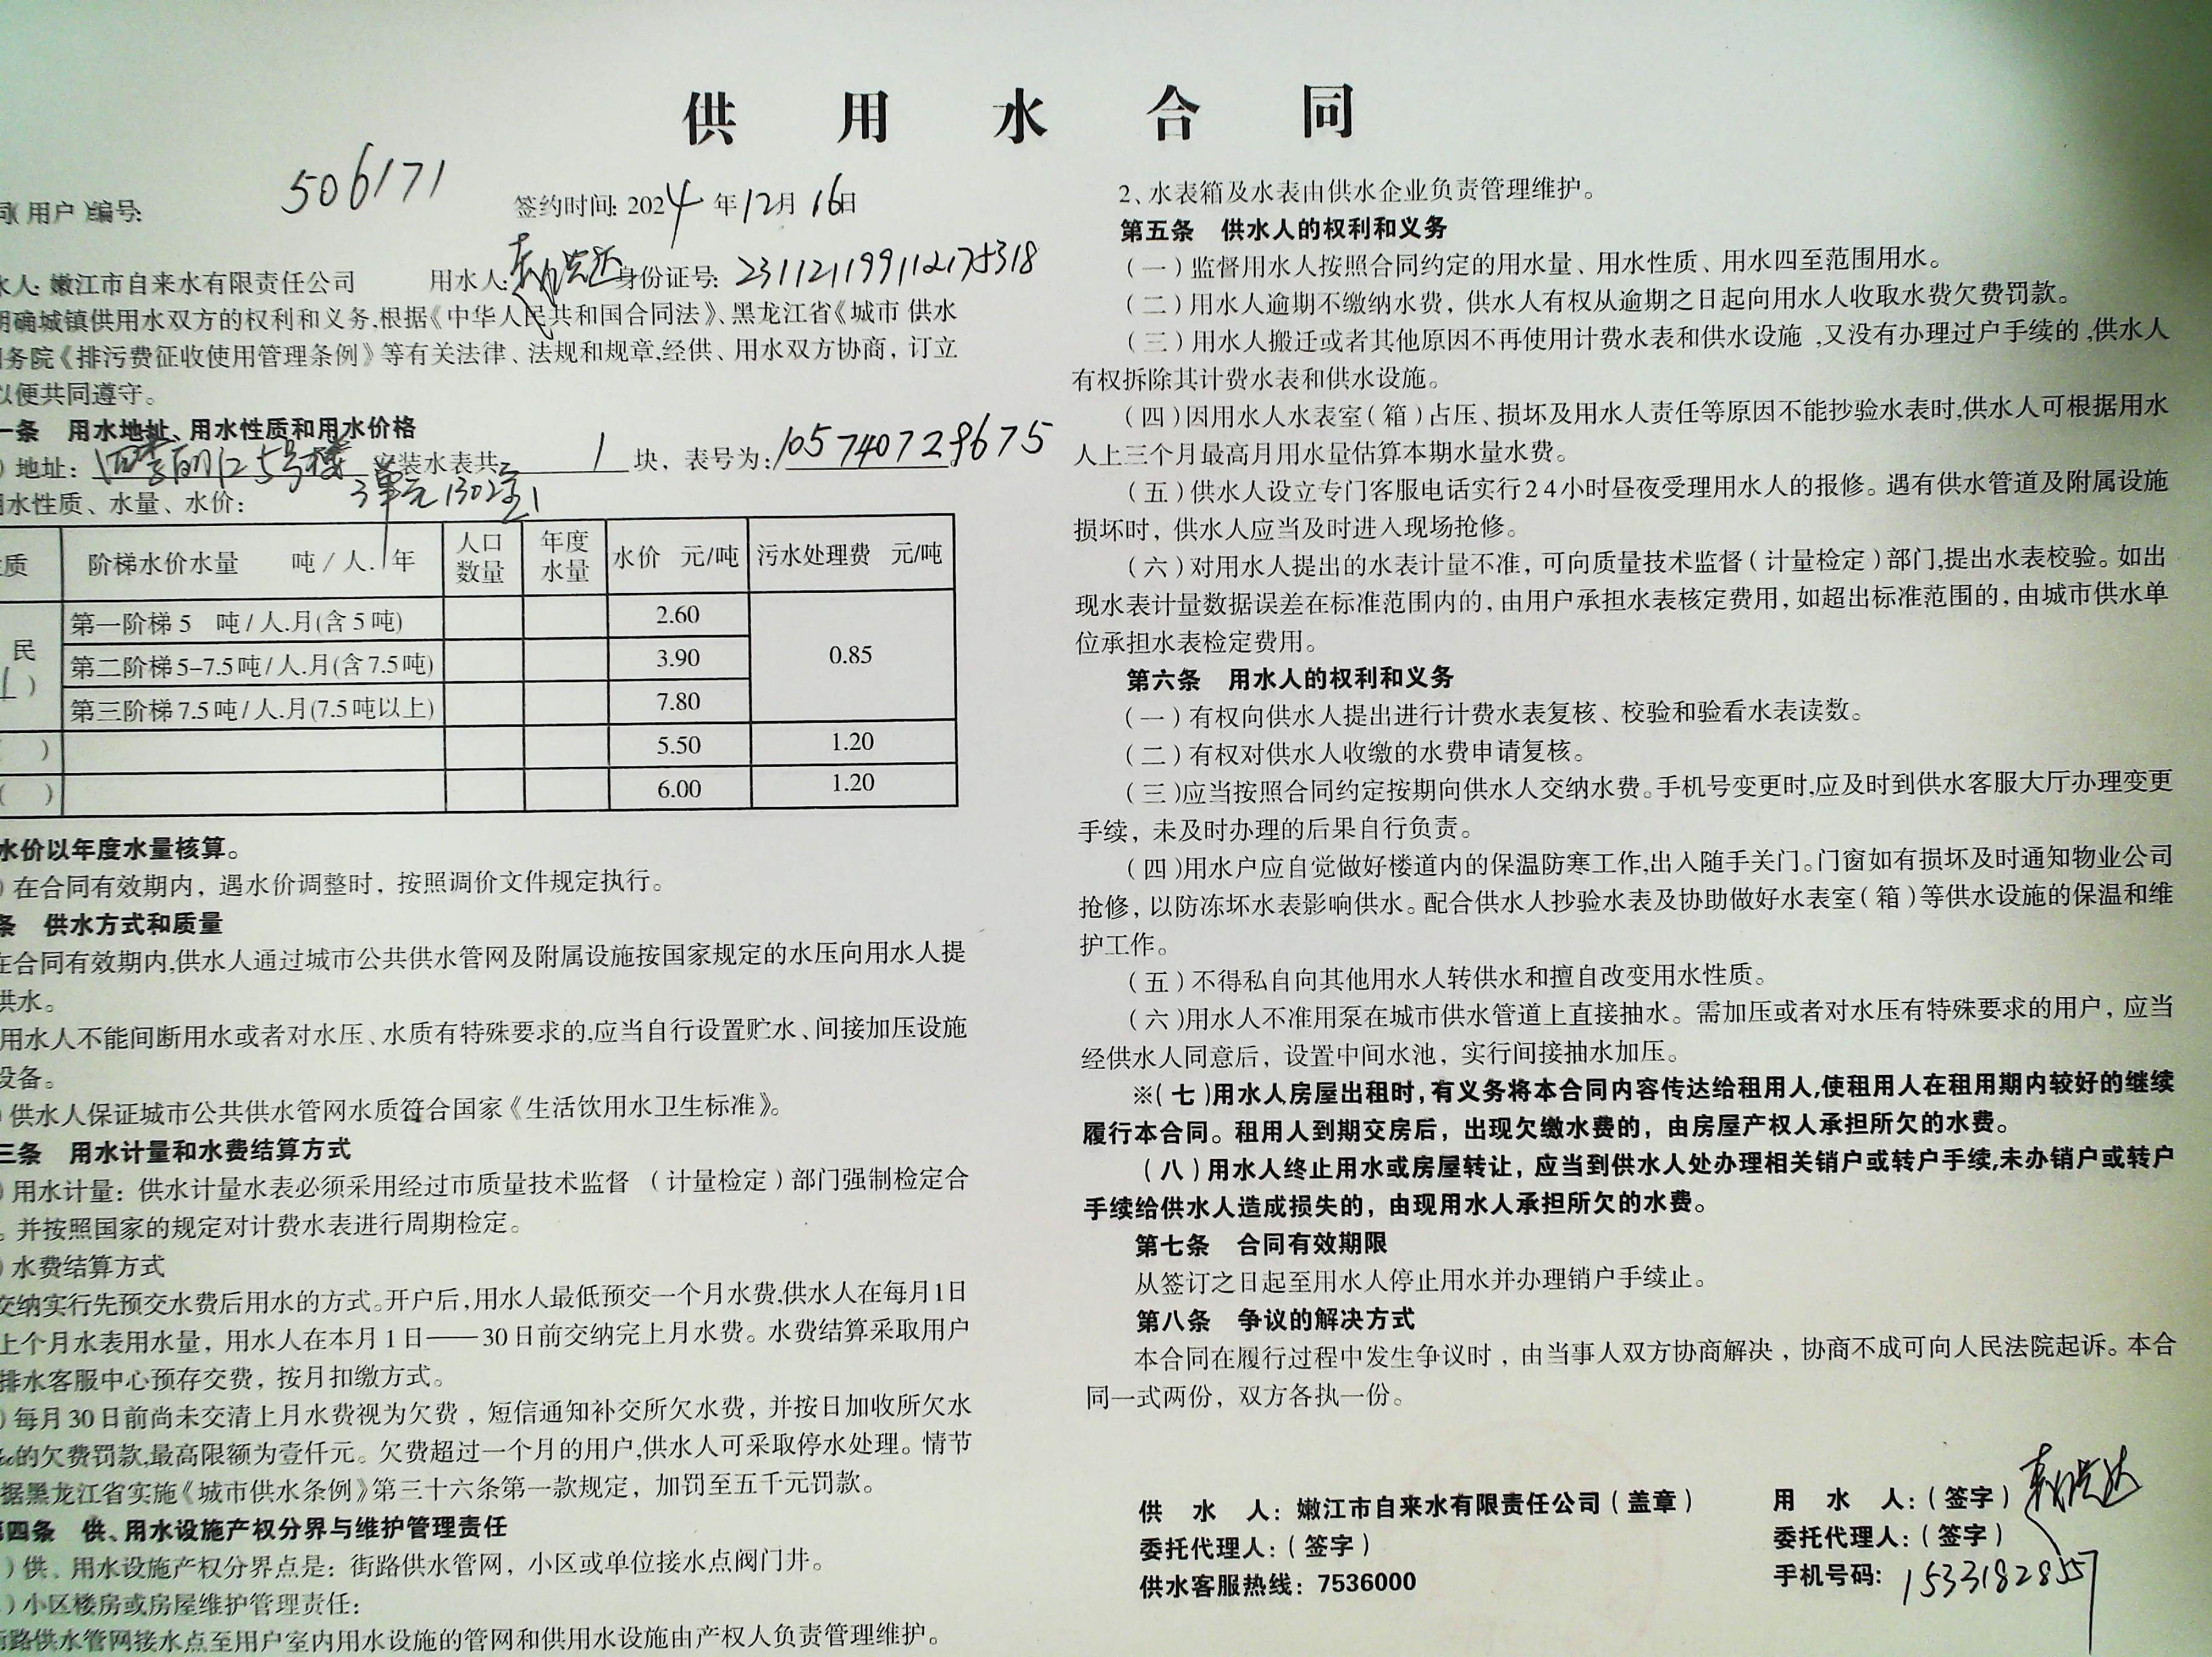 供用水合同
(用户)编号: 506171 签约时间: 2024年12月16日
水人: 嫩江市自来水有限责任公司 用水人: 身份证号: 231121199112175318
明确城镇供用水双方的权利和义务,根据《中华人民共和国合同法》、黑龙江省《城市 供水
务院《排污费征收使用管理条例》等有关法律、法规和规章,经供、用水双方协商，订立
以便共同遵守。
一条 用水地址、用水性质和用水价格
)地址: 5号楼 安装水表共 1 块，表号为: 105740729675
3单元1302室
用水性质、水量、水价:
质 阶梯水价水量 吨/人.年 人口数量 年度水量 水价 元/吨 污水处理费 元/吨
民 第一阶梯 5 吨/人.月(含5吨) 2.60 0.85
第二阶梯 5-7.5吨/人.月(含7.5吨) 3.90
第三阶梯 7.5吨/人.月(7.5吨以上) 7.80
( ) 5.50 1.20
( ) 6.00 1.20
水价以年度水量核算。
)在合同有效期内，遇水价调整时，按照调价文件规定执行。
条 供水方式和质量
在合同有效期内,供水人通过城市公共供水管网及附属设施按国家规定的水压向用水人提
供水。
用水人不能间断用水或者对水压、水质有特殊要求的,应当自行设置贮水、间接加压设施
设备。
)供水人保证城市公共供水管网水质符合国家《生活饮用水卫生标准》。
三条 用水计量和水费结算方式
)用水计量：供水计量水表必须采用经过市质量技术监督 （计量检定）部门强制检定合
。并按照国家的规定对计费水表进行周期检定。
)水费结算方式
交纳实行先预交水费后用水的方式。开户后,用水人最低预交一个月水费,供水人在每月1日
上个月水表用水量，用水人在本月1日——30日前交纳完上月水费。水费结算采取用户
排水客服中心预存交费，按月扣缴方式。
)每月30日前尚未交清上月水费视为欠费，短信通知补交所欠水费，并按日加收所欠水
的欠费罚款,最高限额为壹仟元。欠费超过一个月的用户,供水人可采取停水处理。情节
据黑龙江省实施《城市供水条例》第三十六条第一款规定，加罚至五千元罚款。
第四条 供、用水设施产权分界与维护管理责任
)供、用水设施产权分界点是：街路供水管网，小区或单位接水点阀门井。
)小区楼房或房屋维护管理责任:
街路供水管网接水点至用户室内用水设施的管网和供用水设施由产权人负责管理维护。
2、水表箱及水表由供水企业负责管理维护。
第五条 供水人的权利和义务
(一)监督用水人按照合同约定的用水量、用水性质、用水四至范围用水。
(二)用水人逾期不缴纳水费，供水人有权从逾期之日起向用水人收取水费欠费罚款。
(三)用水人搬迁或者其他原因不再使用计费水表和供水设施,又没有办理过户手续的,供水人
有权拆除其计费水表和供水设施。
(四)因用水人水表室(箱)占压、损坏及用水人责任等原因不能抄验水表时,供水人可根据用水
人上三个月最高月用水量估算本期水量水费。
(五)供水人设立专门客服电话实行24小时昼夜受理用水人的报修。遇有供水管道及附属设施
损坏时，供水人应当及时进入现场抢修。
(六)对用水人提出的水表计量不准，可向质量技术监督(计量检定)部门,提出水表校验。如出
现水表计量数据误差在标准范围内的，由用户承担水表核定费用，如超出标准范围的，由城市供水单
位承担水表检定费用。
第六条 用水人的权利和义务
(一)有权向供水人提出进行计费水表复核、校验和验看水表读数。
(二)有权对供水人收缴的水费申请复核。
(三)应当按照合同约定按期向供水人交纳水费。手机号变更时,应及时到供水客服大厅办理变更
手续，未及时办理的后果自行负责。
(四)用水户应自觉做好楼道内的保温防寒工作,出入随手关门。门窗如有损坏及时通知物业公司
抢修，以防冻坏水表影响供水。配合供水人抄验水表及协助做好水表室(箱)等供水设施的保温和维
护工作。
(五)不得私自向其他用水人转供水和擅自改变用水性质。
(六)用水人不准用泵在城市供水管道上直接抽水。需加压或者对水压有特殊要求的用户，应当
经供水人同意后，设置中间水池，实行间接抽水加压。
※(七)用水人房屋出租时，有义务将本合同内容传达给租用人,使租用人在租用期内较好的继续
履行本合同。租用人到期交房后，出现欠缴水费的，由房屋产权人承担所欠的水费。
(八)用水人终止用水或房屋转让，应当到供水人处办理相关销户或转户手续,未办销户或转户
手续给供水人造成损失的，由现用水人承担所欠的水费。
第七条 合同有效期限
从签订之日起至用水人停止用水并办理销户手续止。
第八条 争议的解决方式
本合同在履行过程中发生争议时，由当事人双方协商解决，协商不成可向人民法院起诉。本合
同一式两份，双方各执一份。
供 水 人：嫩江市自来水有限责任公司（盖章） 用 水 人：(签字)
委托代理人：(签字) 委托代理人：(签字)
供水客服热线：7536000 手机号码: 15331828557